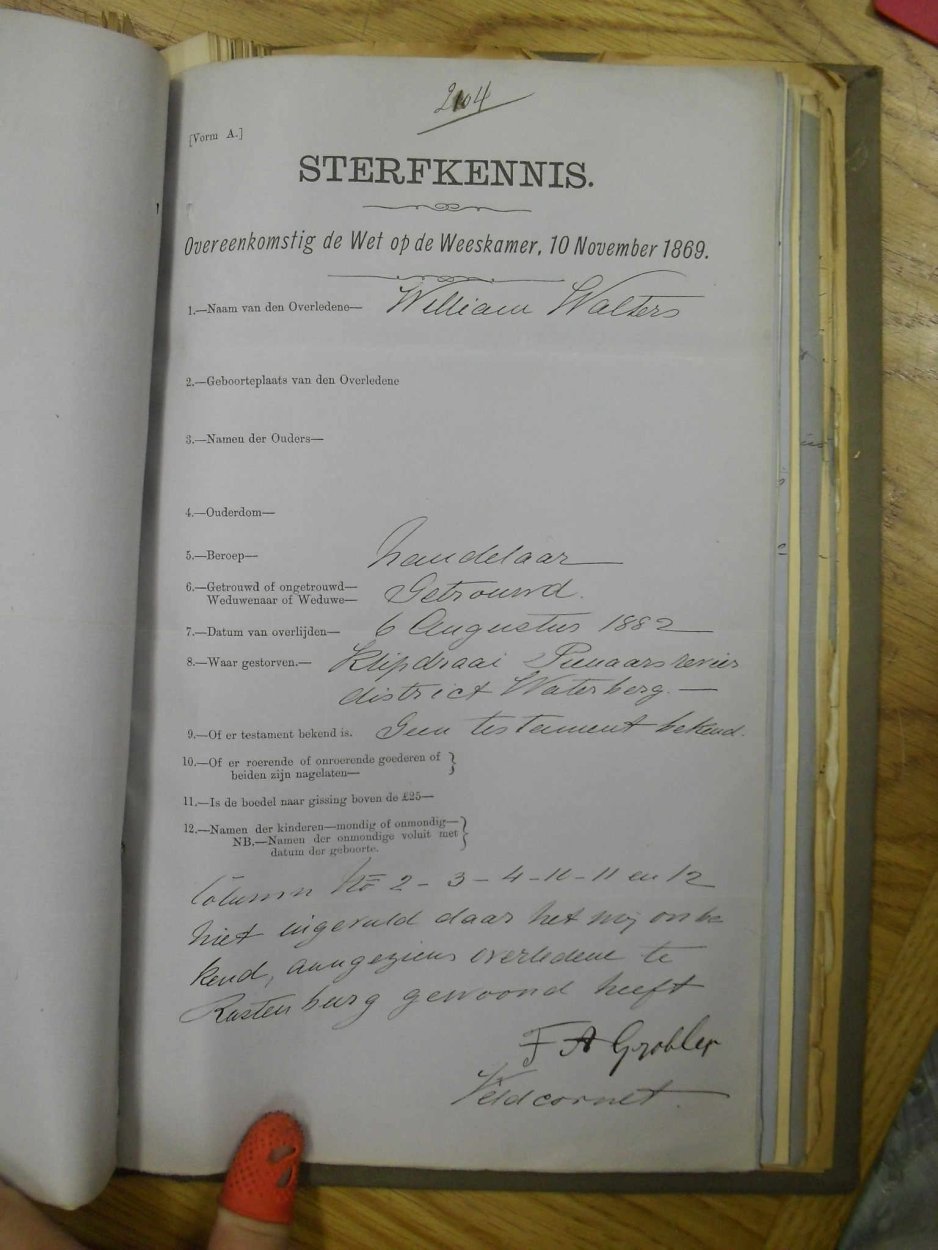 2104
[Vorm A.]
STERFKENNIS.
Overeenkomstig de Wet op de Weeskamer, 10 November 1869.
1.—Naam van den Overledene— William Walters
2.—Geboorteplaats van den Overledene
3.—Namen der Ouders—
4.—Ouderdom—
5.—Beroep— handelaar
6.—Getrouwd of ongetrouwd— Getrouwd.
Weduwenaar of Weduwe—
7.—Datum van overlijden— 6 Augustus 1882
8.—Waar gestorven.— Klipdraai Pienaarsrevier
district Waterberg.—
9.—Of er testament bekend is. Geen testament bekend.
10.—Of er roerende of onroerende goederen of
beiden zijn nagelaten—
11.—Is de boedel naar gissing boven de £25—
12.—Namen der kinderen—mondig of onmondig—
NB.—Namen der onmondige voluit met
datum der geboorte.
Column No 2-3-4-10-11 en 12
niet ingevuld daar het mij onbe
kend, aangeziens overledene te
Rustenburg gewoond heeft
F A Grobler
Veldcornet.